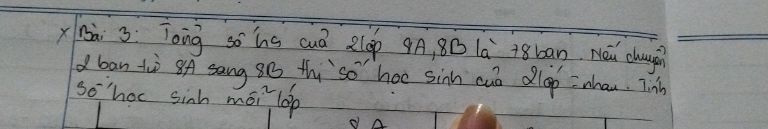 x Bài 3: Tổng số hs cuả 2 lớp 8A, 8B là 78 bạn. Nếu chuyển
2 bạn từ 8A sang 8B thì số học sinh cuả 2 lớp = nhau. Tính
Số học sinh mỗi lớp
8A